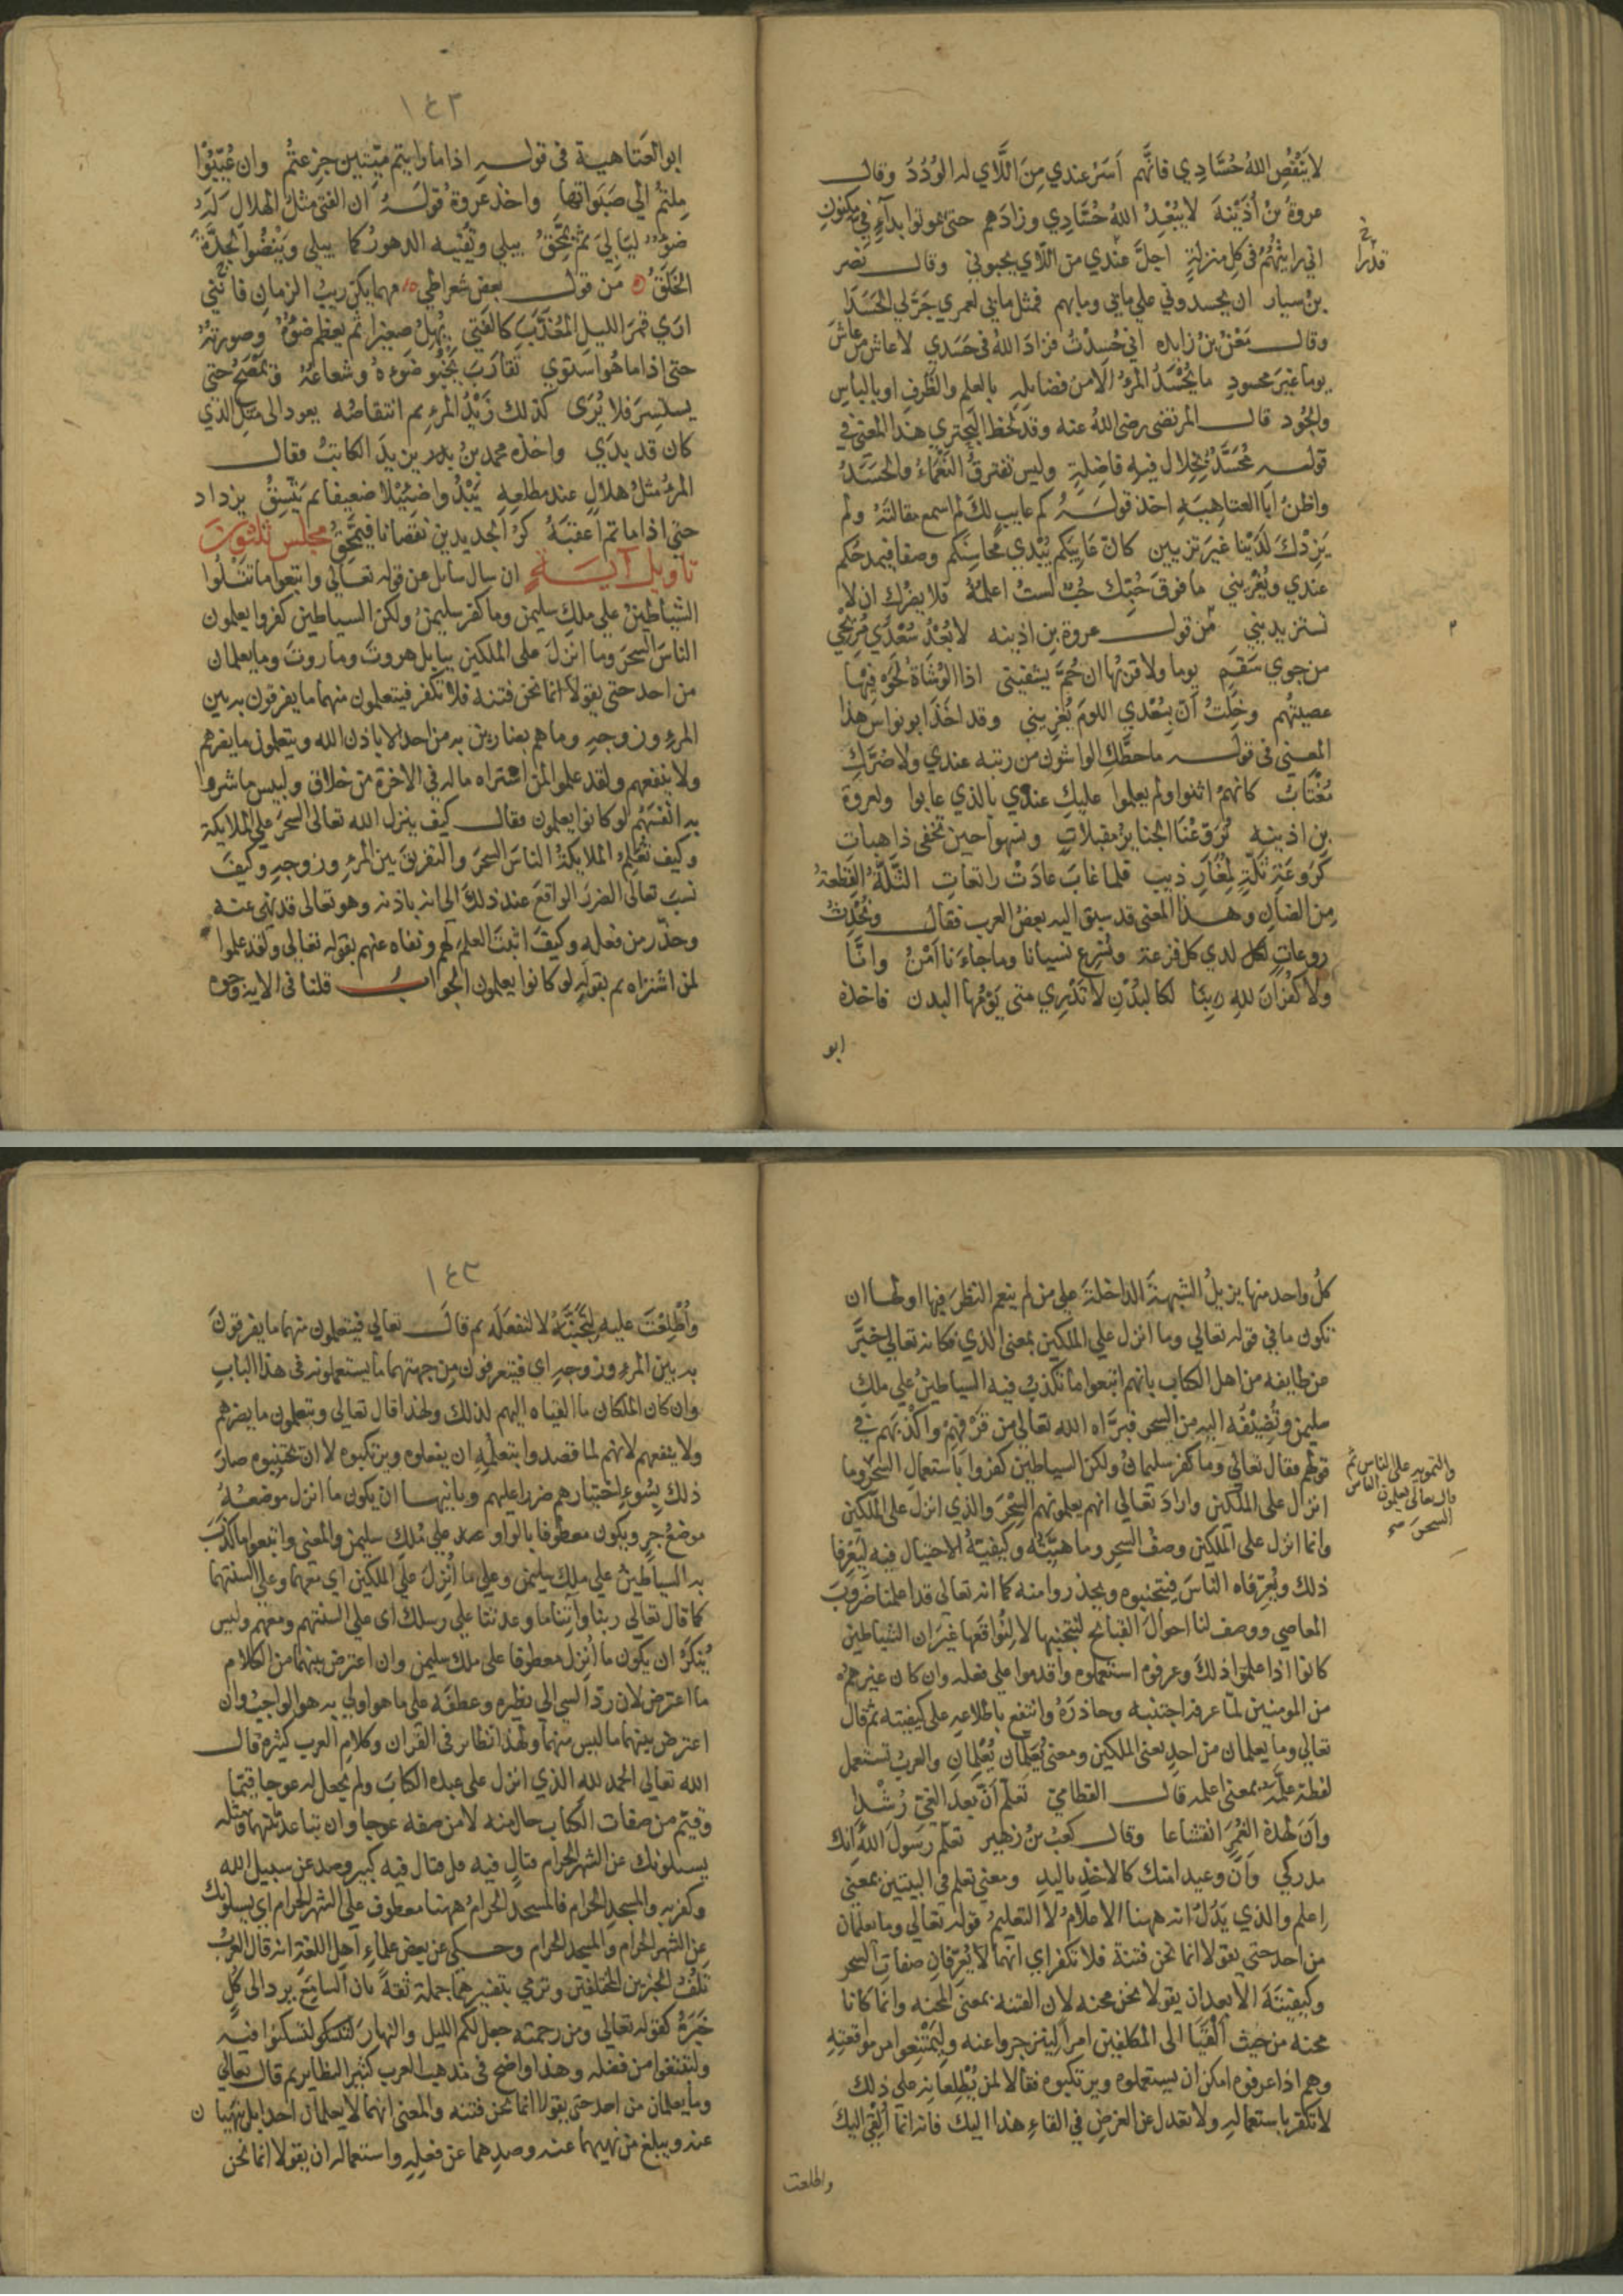 لا ينقص الله حسادي فانهم اسر عندي من اللاي له الودد وقال
عروة بن أذينة لا يبعد الله حسادي وزادهم حتى يموتوا بداء في مكنون
اني رايتهم في كل منزلة اجل عندي من اللاي يحبوني وقال نصر
قدرا
بن سيار ان يحسدوني على ما بي وما بهم فمثل ما بي لعمري جر لي الحسدا
وقال معن بن زايده اني حسدت فزاد الله في حسدي لا عاش من عاش
يوما غير محسود ما يحسد المرء الا من فضايله بالعلم والظرف او بالباس
والجود قال المرتضى رضى الله عنه وقد لحظ البحتري هذا المعنى في
قوله محسد بخلال فيه فاضلة وليس تفترق النعماء والحسد
واظن ابا العتاهية اخذ قوله كم عايب لك لم اسمع مقالته ولم
يزدك لدينا غير تزيين كان عايبكم يبدي محاسنكم وصفا فيمدحكم
عندي ويغريني ما فوق حبك حب لست اعلمه فلا يضرك ان لا
تستزيديني من قول عروة بن اذينه لا بعد سعدي مريحي
من جوي سقم يوما ولا قربها ان حم يشفيني اذا الوشاة لحوا فيها
عصيتهم وخلت ان بسعدي اللوم يغريني وقد اخذ ابو نواس هذا
المعنى في قوله ما حطك الواشون من رتبه عندي ولا ضرك
مغتاب كانهم اثنوا ولم يعلموا عليك عندي بالذي عابوا ولعروة
بن اذينه نروع عنا الجنايز مقبلات ونسهوا حين تخفى ذاهبات
كروعة ثلة لمغار ذيب فلما غاب عادت راتعات الثلة القطعة
من الضان وهذا المعنى قد سبق اليه بعض العرب فقال ونحدث
روعات لكل لدي كل فزعة ونسرع نسيانا وما جاءنا امن وانا
ولا كفران لله ربنا لكالبدن لا تدري متى يومها البدن فاخذه
ابو
١٤٢
ابو العتاهية في قوله اذا ما رايتم ميتين جزعتم وان غيبوا
ملتم الى صبواتها واخذ عروة قوله ان الفتى مثل الهلال له
ضوء ليالي ثم يمحق يبلي وتفنيه الدهور كما يبلي وينضوا الجدة
الخلق من قول بعض شعرا طي مهما يكن ريب الزمان فانني
ارى قمر الليل المعذب كالفتي يهل صغيرا ثم يعظم ضوءه وصورته
حتى اذا ما هو استوي تقارب يخبو ضوءه وشعاعه ويمصح حتى
يستسر فلا يرى كذلك زيد المرء ثم انتقاصه يعود الى مثل الذي
كان قد بدي واخذه محمد بن يزيد الكاتب فقال
المرء مثل هلال عند مطلعه يبدوا ضئيلا ضعيفا ثم يتسق يزداد
حتى اذا ما تم اعقبه كر الجديدين نقصانا فيمحق مجلس ثلثون
تاويل آية ان سال سايل عن قوله تعالى واتبعوا ما تتلوا
الشياطين على ملك سليمن وما كفر سليمن ولكن الشياطين كفروا يعلمون
الناس السحر وما انزل على الملكين ببابل هروت وماروت وما يعلمان
من احد حتى يقولا انما نحن فتنه فلا تكفر فيتعلمون منهما ما يفرقون به بين
المرء وزوجه وما هم بضارين به من احد الا باذن الله ويتعلمون ما يضرهم
ولا ينفعهم ولقد علموا لمن اشتراه ما له في الاخرة من خلاق ولبيس ما شروا
به انفسهم لو كانوا يعلمون فقال كيف ينزل الله تعالى السحر على الملايكة
وكيف تعلم الملايكة الناس السحر والتفريق بين المرء وزوجه وكيف
نسب تعالى الضرر الواقع عند ذلك الى انه باذنه وهو تعالى قد نهى عنه
وحذر من فعله وكيف اثبت العلم لهم ونفاه عنهم بقوله تعالى ولقد علموا
لمن اشتراه ثم بقوله لو كانوا يعلمون الجواب قلنا في الاية وجوه
كل واحد منها يزيل الشبهة الداخلة على من لم ينعم النظر فيها اولها ان
تكون ما في قوله تعالى وما انزل على الملكين بمعنى الذي فكانه تعالى خبر
عن طايفه من اهل الكتاب بانهم اتبعوا ما تكذب فيه الشياطين على ملك
سليمن وتضيفه اليه من السحر فبراه الله تعالى من قرفهم واكذبهم في
قولهم فقال تعالى وما كفر سليمان ولكن الشياطين كفروا باستعمال السحر وما
والتمويه على الناس ثم
قال تعالى يعلمون الناس
السحر صح
انزل على الملكين واراد تعالى انهم يعلمونهم السحر والذي انزل على الملكين
وانما انزل على الملكين وصف السحر وماهيته وكيفية الاحتيال فيه ليعرفا
ذلك ويعرفاه الناس فيجتنبوه ويحذروا منه كما انه تعالى قد اعلمنا ضروب
المعاصي ووصف لنا احوال القبائح لنجتنبها لا لنواقعها غير ان الشياطين
كانوا اذا علموا ذلك وعرفوه استعملوه واقدموا على فعله وان كان غيرهم
من المومنين لما عرفه اجتنبه وحاذره وانتفع باطلاعه على كيفيته ثم قال
تعالى وما يعلمان من احد يعنى الملكين ومعنى يعلمان يعلمان والعرب تستعمل
لفظة علمه بمعنى اعلمه قال القطامي تعلم ان بعد الغي رشدا
وان لهذه الغمر انقشاعا وقال كعب بن زهير تعلم رسول الله انك
مدركي وان وعيدا منك كالاخذ باليد ومعنى تعلم في البيتين بمعنى
اعلم والذي يدل انه ههنا الاعلام لا التعليم قوله تعالى وما يعلمان
من احد حتى يقولا انما نحن فتنة فلا تكفر اي انهما لا يعرفان صفات السحر
وكيفيته الا بعد ان يقولا نحن محنه لان الفتنه بمعنى المحنه وانما كانا
محنه من حيث القيا الى المكلفين امرا لينزجروا عنه وليمتنعوا من مواقعته
وهم اذا عرفوه امكن ان يستعملوه ويرتكبوه فقالا لمن يطلعانه على ذلك
لا تكفر باستعماله ولا تعدل عن الغرض في القاء هذا اليك فانه انما القي اليك
واطلعت
١٤٣
واطلعت عليه لتجتنبه لا لتفعله ثم قال تعالى فيتعلمون منهما ما يفرقون
به بين المرء وزوجه اي فيتعرفون من جهتهما ما يستعملونه في هذا الباب
وان كان الملكان ما القياه اليهم لذلك ولهذا قال تعالى ويتعلمون ما يضرهم
ولا ينفعهم لانهم لما قصدوا بتعلمه ان يفعلوه ويرتكبوه لا ان يجتنبوه صار
ذلك بسوء اختيارهم ضررا عليهم وثانيها ان يكون ما انزل موضعه
موضع جر ويكون معطوفا بالواو على ملك سليمن والمعنى واتبعوا ما كذب
به الشياطين على ملك سليمن وعلى ما انزل على الملكين اي معهما وعلى السنتهما
كما قال تعالى ربنا وآتنا ما وعدتنا على رسلك اى على السنتهم ومعهم وليس
ينكر ان يكون ما انزل معطوفا على ملك سليمن وان اعترض بينهما من الكلام
ما اعترض لان رد الشى الى نظيره وعطفه على ما هو اولى به هو الواجب وان
اعترض بينهما ما ليس منهما ولهذا نظاير في القران وكلام العرب كثيرة قال
الله تعالى الحمد لله الذي انزل على عبده الكتاب ولم يجعل له عوجا قيما
وقيم من صفات الكتاب حال منه لا من صفه عوجا وان تباعد بينهما ومثله
يسلونك عن الشهر الحرام قتال فيه قل قتال فيه كبير وصد عن سبيل الله
وكفر به والمسجد الحرام فالمسجد الحرام ههنا معطوف على الشهر الحرام اي يسلونك
عن الشهر الحرام والمسجد الحرام وحكى عن بعض علماء اهل اللغة انه قال العرب
تلف الخبرين المختلفين وترمي بتفسيرهما جملة ثقة بان السامع يرد الى كل
خبره كقوله تعالى ومن رحمته جعل لكم الليل والنهار لتسكنوا فيه
ولتبتغوا من فضله وهذا واضح في مذهب العرب كثير النظاير ثم قال تعالى
وما يعلمان من احد حتى يقولا انما نحن فتنه والمعنى انهما لا يعلمان احدا بل ينهيان
عنه ويبلغ من نهيهما عنه وصدهما عن فعله واستعماله ان يقولا انما نحن